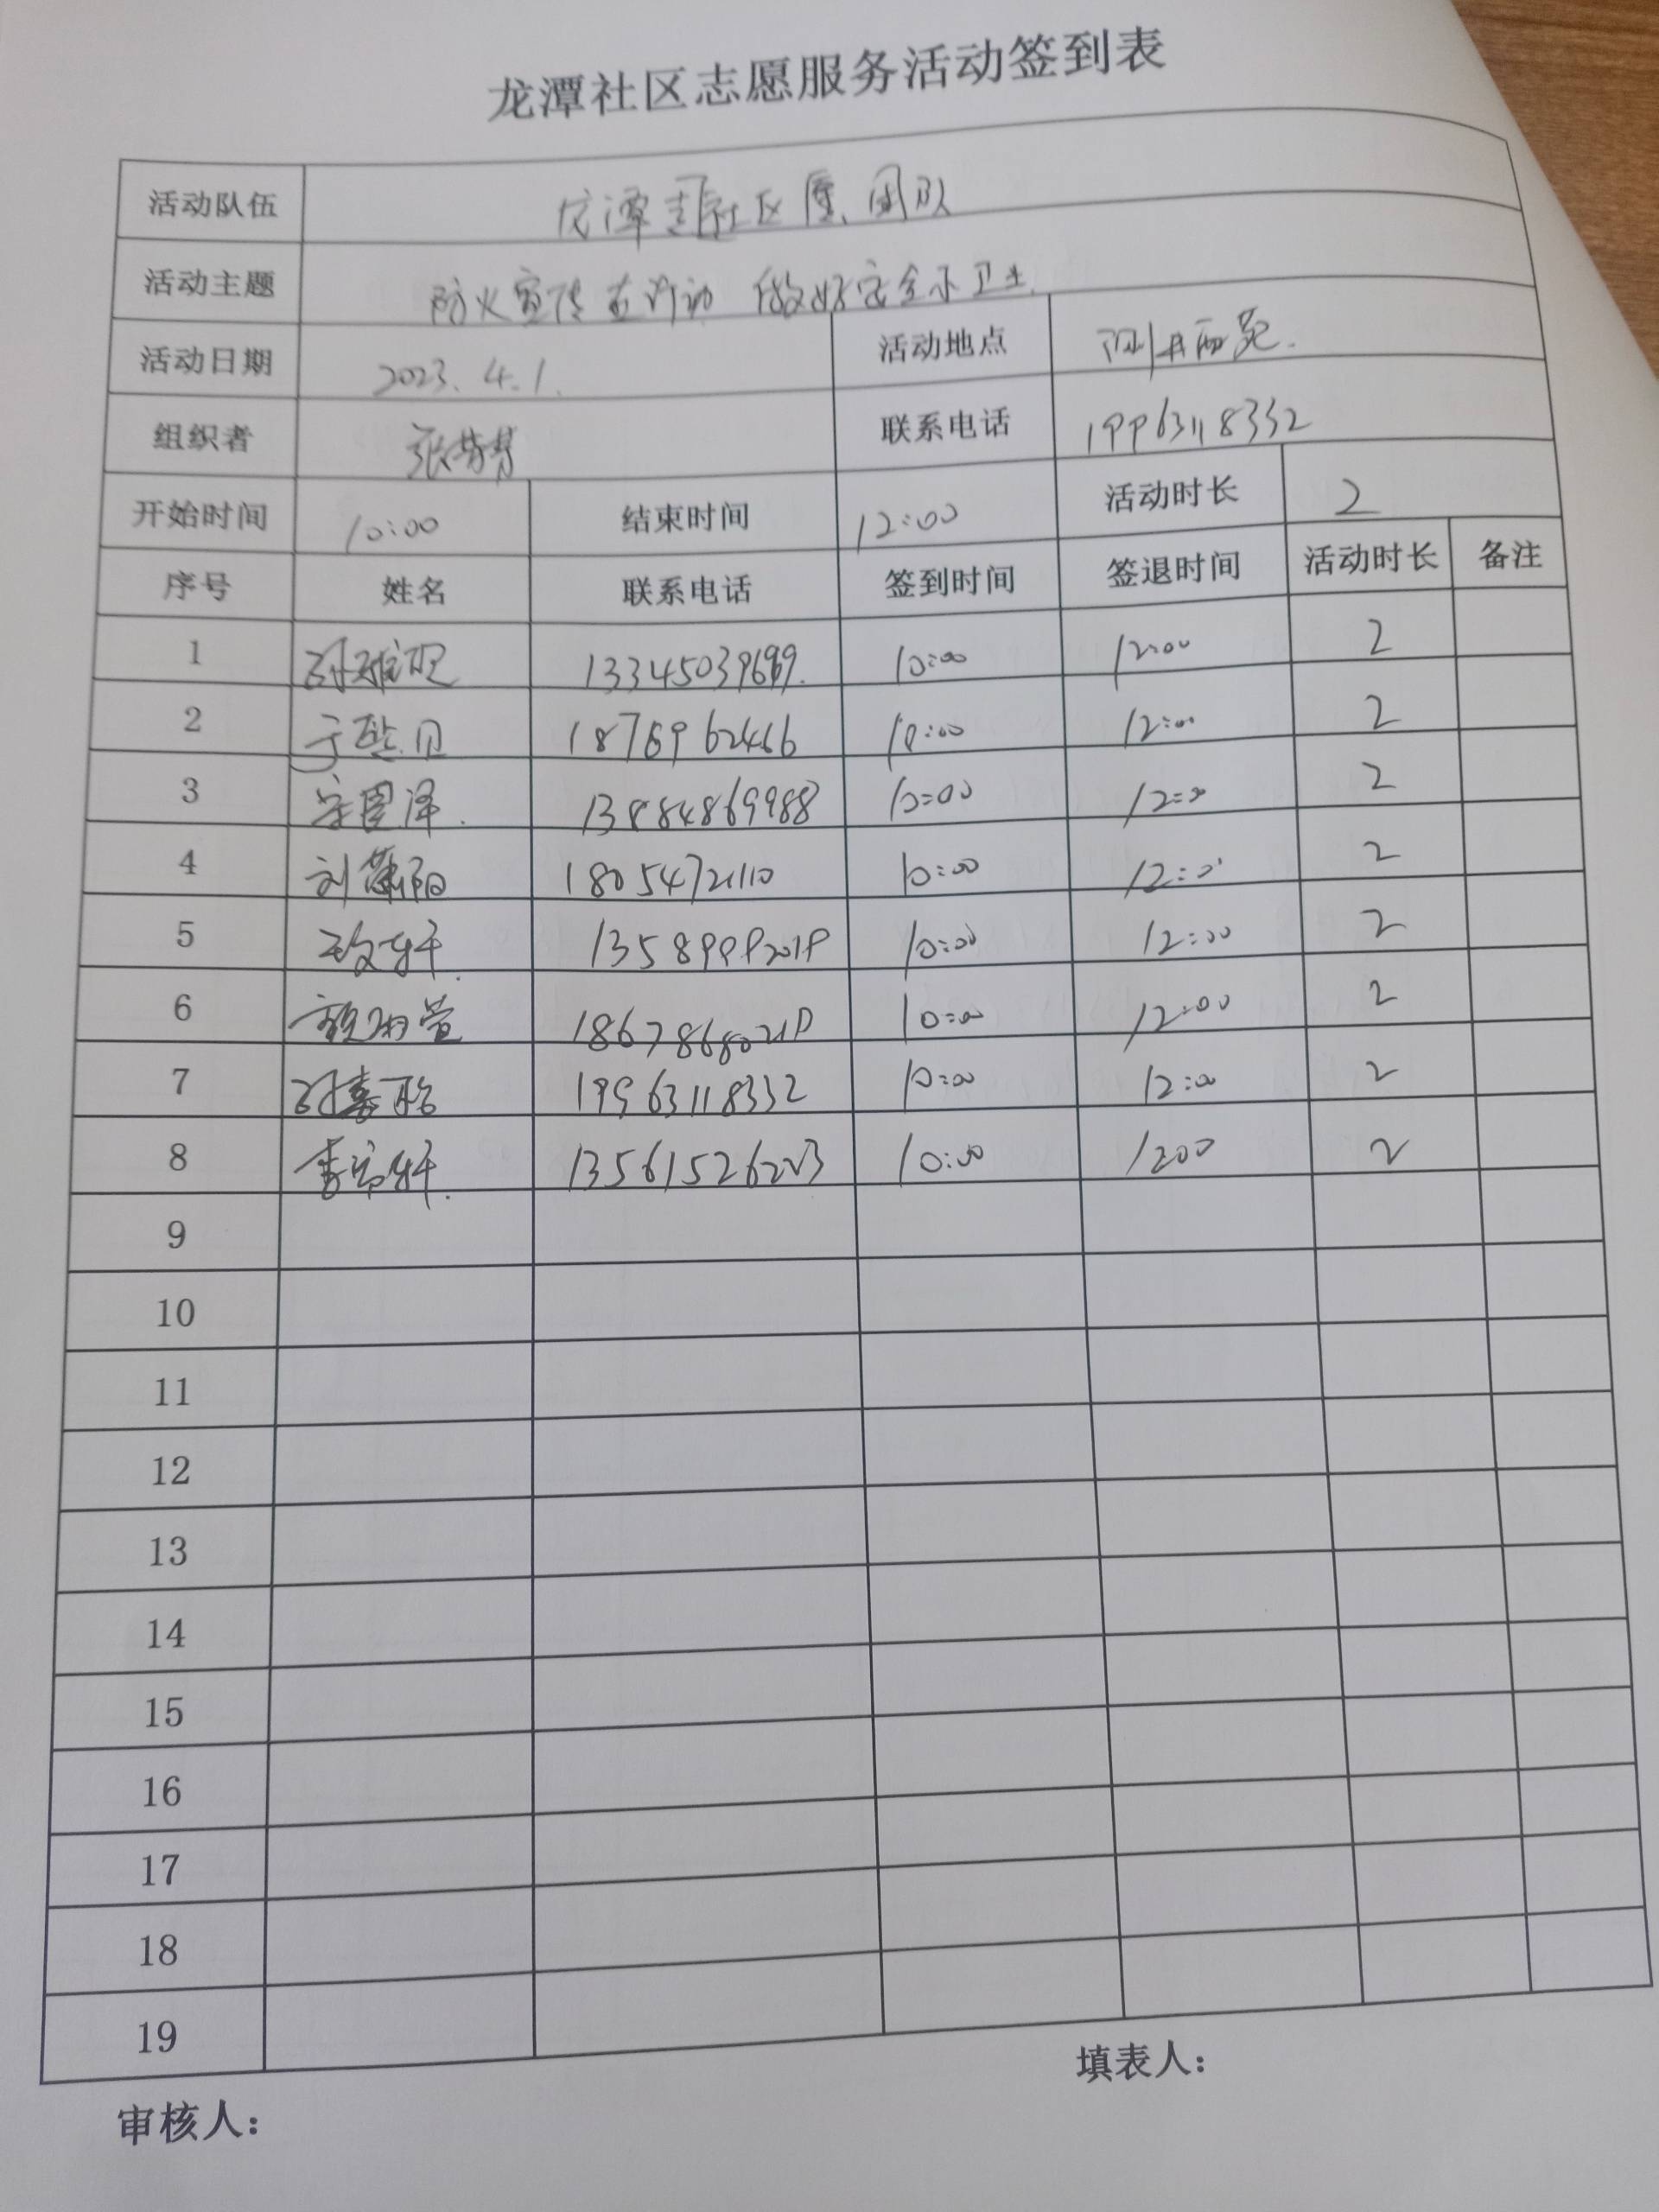 龙潭社区志愿服务活动签到表
活动队伍 龙潭社区 团队
活动主题 防火宣传在行动 做好安全小卫士
活动日期 2023.4.1. 活动地点
组织者 联系电话 19963118332
开始时间 10:00 结束时间 12:00 活动时长 2
序号 姓名 联系电话 签到时间 签退时间 活动时长 备注
1 10:00 12:00 2
2 18769962466 10:00 12:00 2
3 13884869988 10:00 12:00 2
4 刘 阳 18054721110 10:00 12:00 2
5 13589992019 10:00 12:00 2
6 颜 萱 18678680219 10:00 12:00 2
7 19963118332 10:00 12:00 2
8 李 轩 13561526223 10:00 1200 2
9
10
11
12
13
14
15
16
17
18
19
填表人：
审核人：